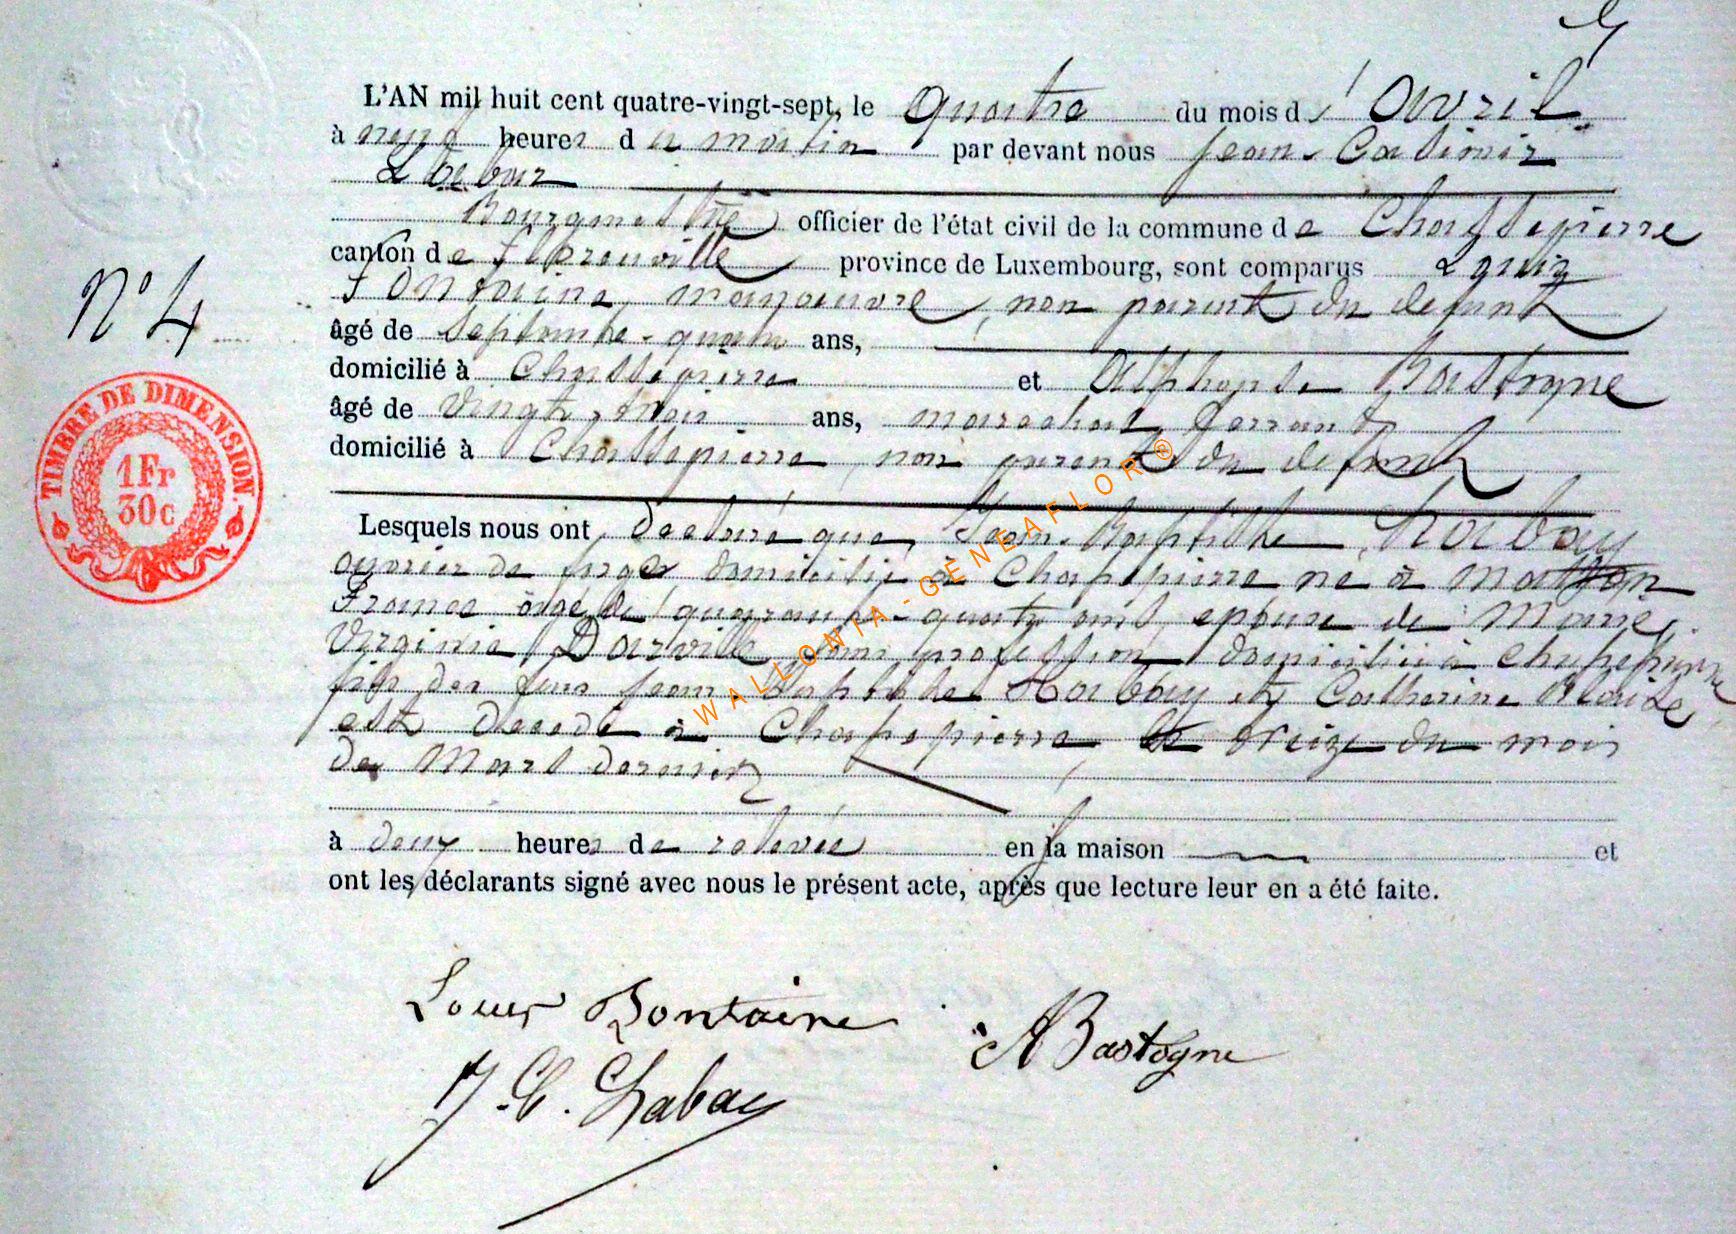 L'AN mil huit cent quatre-vingt-sept, le quatre du mois d' Avril
à neuf heures du matin par devant nous Jean-Casimir
Bourgmestre officier de l'état civil de la commune de Chassepierre
canton de Florenville province de Luxembourg, sont comparus Louis
Fontaine, manoeuvre, non parent du defunt
âgé de septante-quatre ans,
domicilié à Chassepierre et Alphonse Bastogne
âgé de vingt-trois ans, marechal ferrant
domicilié à Chassepierre, non parent du defunt
N° 4
TIMBRE DE DIMENSION.
1 Fr
30 c
Lesquels nous ont déclaré que Jean-Baptiste Harbay
ouvrier de forges domicilié à Chassepierre né à
France âgé de quarante-quatre ans, epoux de Marie
Virginie Darville sans profession domiciliée à Chassepierre
fils des feus Jean Baptiste Harbay et Catherine
est decedé à Chassepierre le treize du mois
de Mars dernier
à deux heures de relevée en la maison et
ont les déclarants signé avec nous le présent acte, après que lecture leur en a été faite.
Louis Fontaine
A Bastogne
J. C.
WALLONIA-GENEAFLOR®